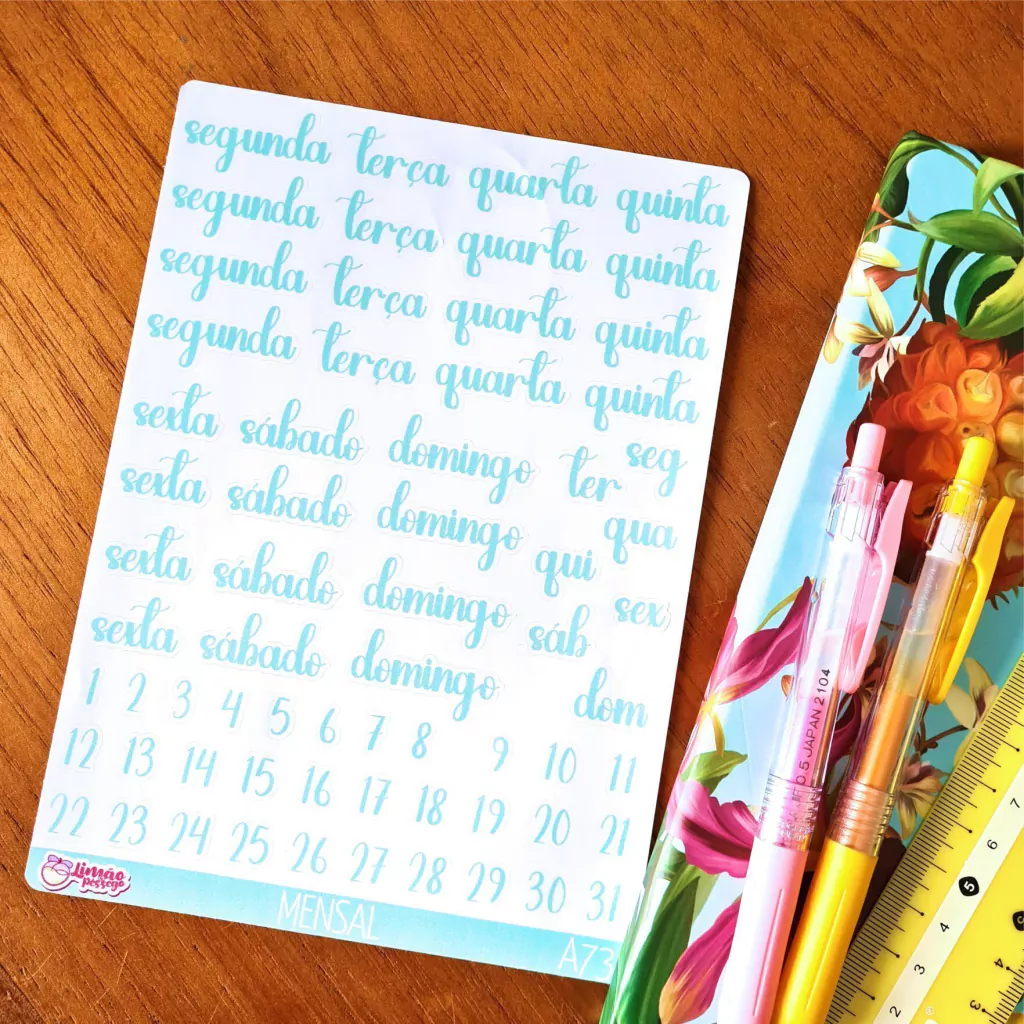 segunda terça quarta quinta
segunda terça quarta quinta
segunda terça quarta quinta
segunda terça quarta quinta
sexta sábado domingo ter seg
sexta sábado domingo qui qua
sexta sábado domingo sáb sex
sexta sábado domingo dom
1 2 3 4 5 6 7 8 9 10 11
12 13 14 15 16 17 18 19 20 21
22 23 24 25 26 27 28 29 30 31
Limão & pêssego
MENSAL
A73
0.5 JAPAN 2104
7
6
5
4
3
2
4
3